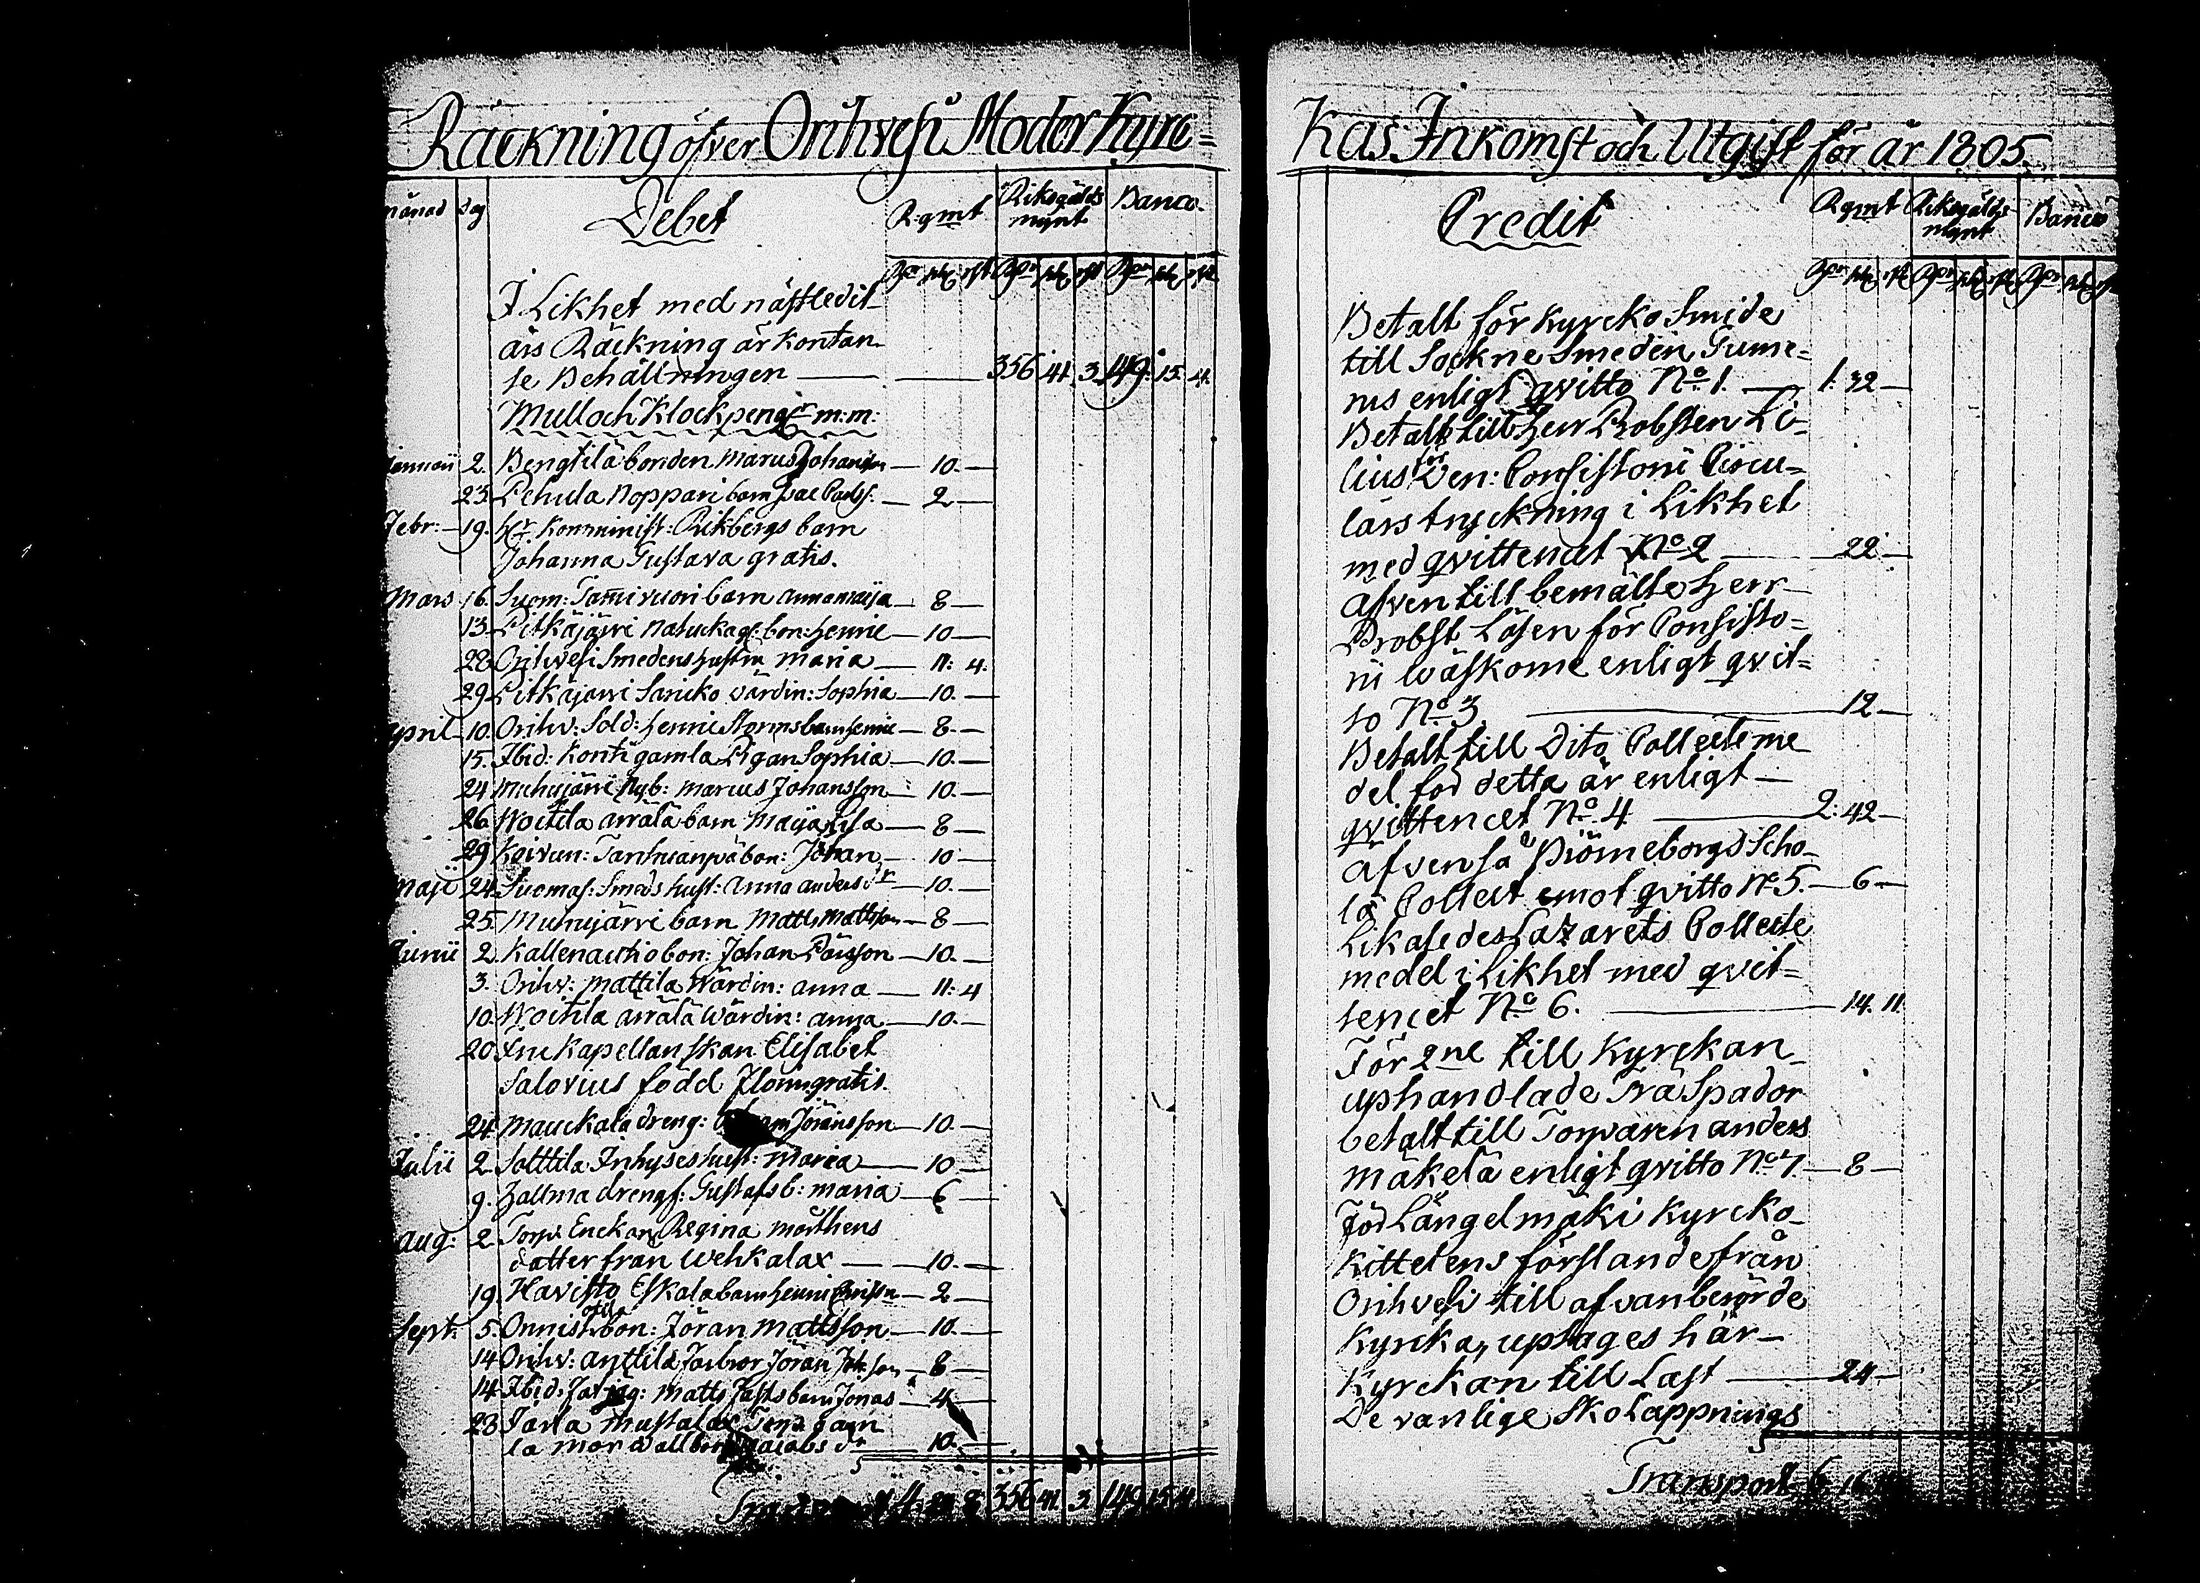 Räckning öfver Orihvesi Moder Kyrc=
Månad Dag Debet R:gmt Riksgälds mynt Banco.
Rdr sk rst Rdr sk rst Rdr sk rst
I Likhet med nästledit
års Räckning är kontan
te Behållningen — 356. 41. 3. 149. 15. 4.
Mull och Klockpengar m:m:
Januarii 2. Bengtilä bonden Marus Johansson — 10. —
23. Pehula Noppari barn Isac Paulss: — 2 —
Febr: — 19. Hr Komminist: Rikbergs barn
Johanna Gustava gratis.
Mars 16. Suom: Tam̄ivuori barn Anna Maija — 8 —
13. Pitkäjärvi Natuckag: bon: Henric — 10 —
28. Orihvesi Smedens hustru Maria — 11: 4:
29. Pitkäjärvi Saricko Värdin: Sophia — 10. —
April 10. Orihv: Sold: Henric Storms barn Henric — 8 —
15. Ibid: Kontti gamla Pigan Sophia — 10. —
24 Muhujärvi Nyb: Marcus Johansson — 10. —
26. Woitila Arrälä barn Maija Lisa — 8 —
29. Koivun: Tanhuanpä bon: Johan — 10 —
Maji 24. Suomas: Smeds hust: Anna Anders dr — 10. —
25. Muhujärvi barn Matts Mattsson — 8 —
Junii 2. Kallenautio bon: Johan Pärsson — 10. —
3. Orihv: Mattila Wärdin: Anna — 11: 4
10. Woitila Arrälä Wärdin: Anna — 10. —
20. Enckapellanskan Elisabet
Salovius född Ilonn gratis.
24. Mauckala dreng: Jöransson — 10. —
Julii 2. Solttila Inhyses hust: Maria — 10. —
9. Hallma drengs: Gustafs b: Maria — 6 —
Aug: 2. Torp: Enckan Regina Mårthens
datter från Wehkalax — 10. —
19. Havisto Eskola barn Henric Henrisson — 2 —
Sept: 5. Onnistula bon: Jöran Mattsson — 10. —
14. Orihv: Anttila Farbror Jöran Joh:son — 8 —
14. Ibid: Matts Fasts barn Jonas — 4 —
23. Tarla Mustalax Torp gam
la mor Wallborg Jacobs dr — 10. —
4: 8 356 41. 3. 149 15. 4.
Kas Inkomst och Utgift för år 1805.
Credit Rgmt Riksgälds mynt Banco
Rdr sk rst Rdr sk rst Rdr sk rst
Betalt för Kyrcko Smide
till Sockne Smeden Gume=
rus enligt qvitto No 1. — 1: 32 —
Betalt till Herr Probsten Li-
lius för Ven: Consistorii Circu=
lairs tryckning i Likhet
med qvittencet No 2 — 22 —
Äfven till bemälte Herr
Probst Lösen för Consisto=
rii Wäskorne enligt qvit=
to No 3 — 12 —
Betalt till Dito Collecte me
del för detta år enligt —
qvittencet No 4 — 2: 42 —
Äfven så Biörneborgs Scho-
la Collect emot qvitto No 5. — 6 —
Likaledes Lazarets Collecte
medel i Likhet med qvit=
tencet No 6. — 14. 11.
För 2ne till Kyrckan
uphandlade Trä Spador
betalt till Torparen Anders
Mäkelä enligt qvitto No 7. — 8 —
För Längelmäki Kyrcko
Kittelens förslande från
Orihvesi till afvanberörde
Kyrcka, uptages här —
Kyrckan till Last — 24 —
De vanlige Skolappnings
Transport 6. 16.